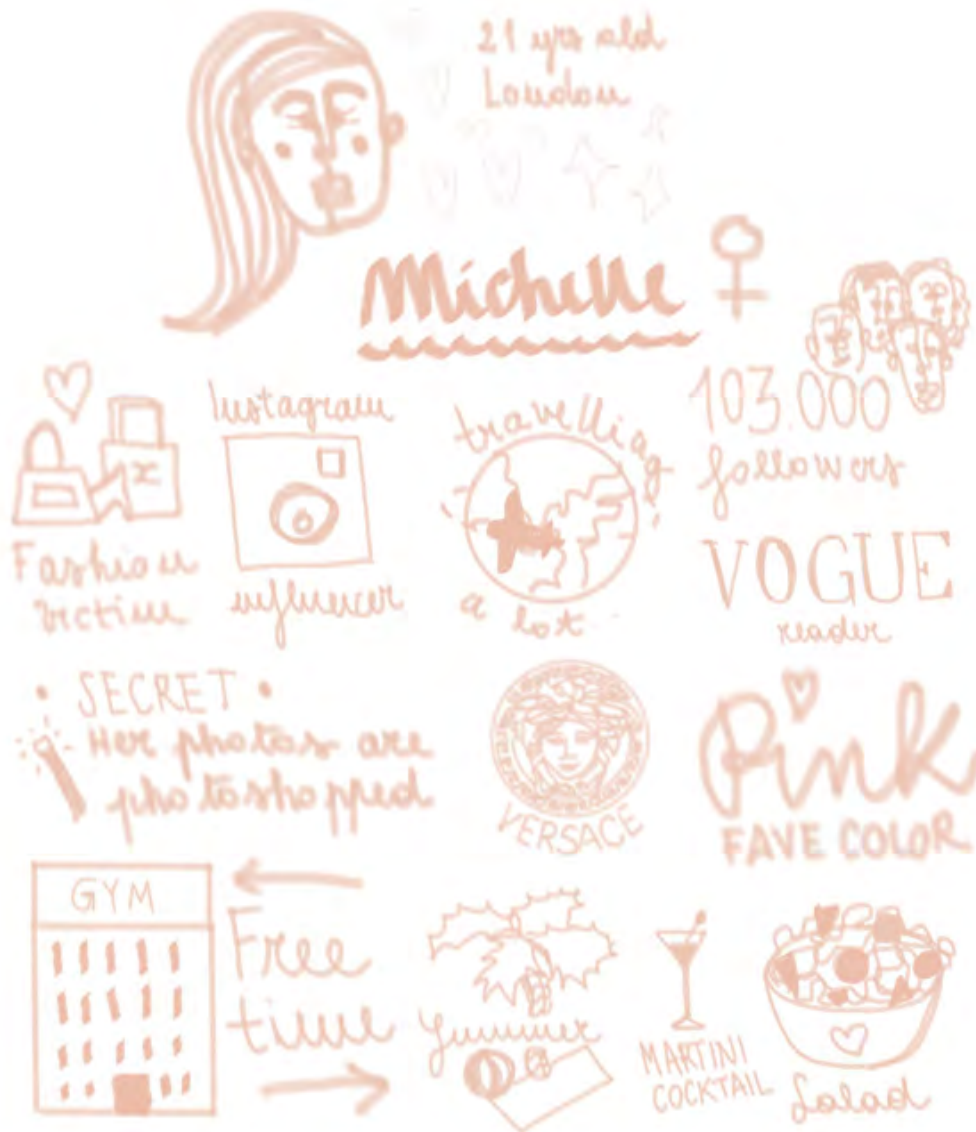 21 yrs old
London
Michelle
103.000
followers
Instagram
influencer
travelling
a lot
Fashion
victim
VOGUE
reader
• SECRET •
Her photos are
photoshopped
VERSACE
Pink
FAVE COLOR
GYM
Free
time
Summer
MARTINI
COCKTAIL
Salad
x